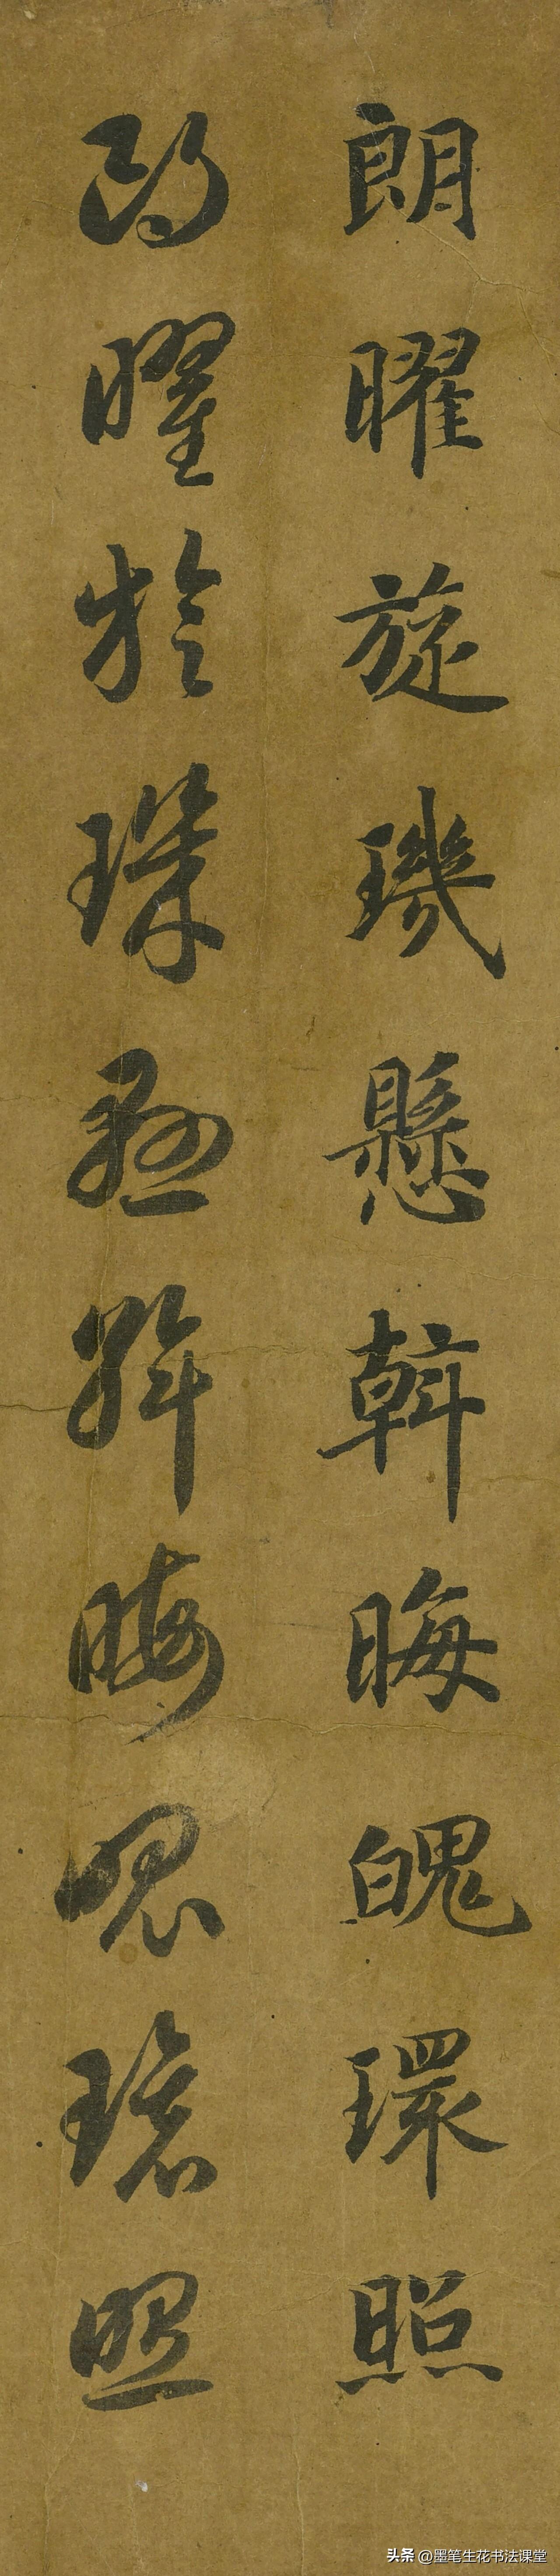 朗曜旋璣懸斡晦魄環照
朗曜旋璣懸斡晦魄環照
头条 @墨笔生花书法课堂